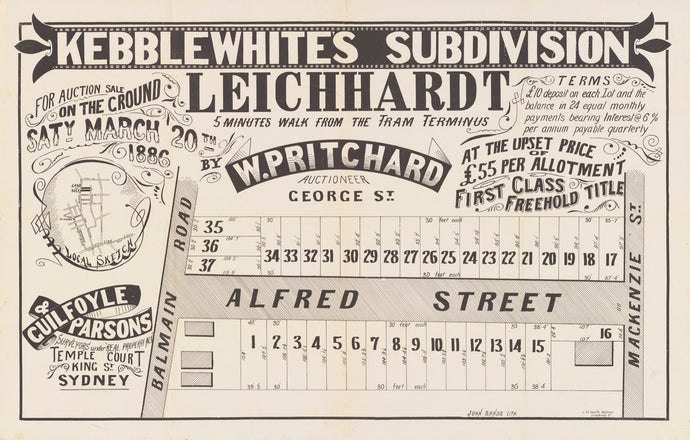 KEBBLEWHITES SUBDIVISION
LEICHHARDT
5 MINUTES WALK FROM THE TRAM TERMINUS
FOR AUCTION SALE
ON THE GROUND
SATY MARCH 20TH
1886
BY
W. PRITCHARD
AUCTIONEER
TERMS
£10 deposit on each Lot and the
balance in 24 equal monthly
payments bearing Interest @ 6%
per annum payable quarterly
AT THE UPSET PRICE
OF
£55 PER ALLOTMENT
FIRST CLASS
FREEHOLD TITLE
LOCAL SKETCH
GUILFOYLE
& PARSONS
SURVEYORS under REAL PROPERTY ACT
TEMPLE COURT
KING ST.
SYDNEY
GEORGE ST.
BALMAIN ROAD
MACKENZIE ST.
30 feet each
35
36
37
34 33 32 31 30 29 28 27 26 25 24 23 22 21 20 19 18 17
30 feet each
ALFRED STREET
30 feet each
1 2 3 4 5 6 7 8 9 10 11 12 13 14 15 16
30 feet each
JOHN SANDS LITH.